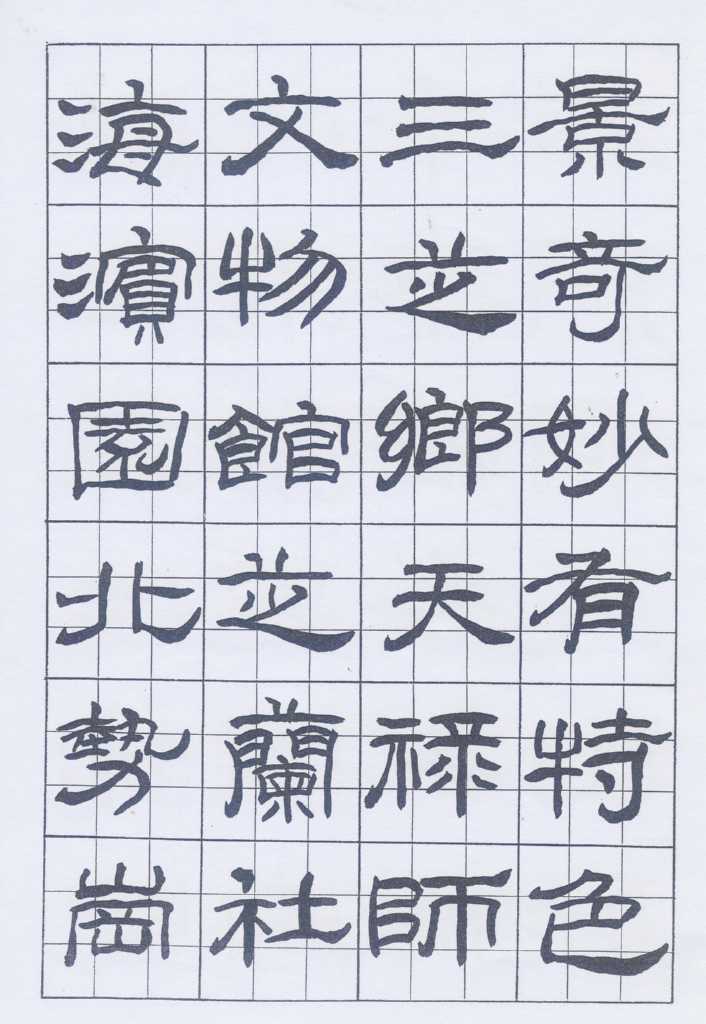 景奇妙有特色
三芝鄉天祿師
文物館芝蘭社
海濱園北勢崗